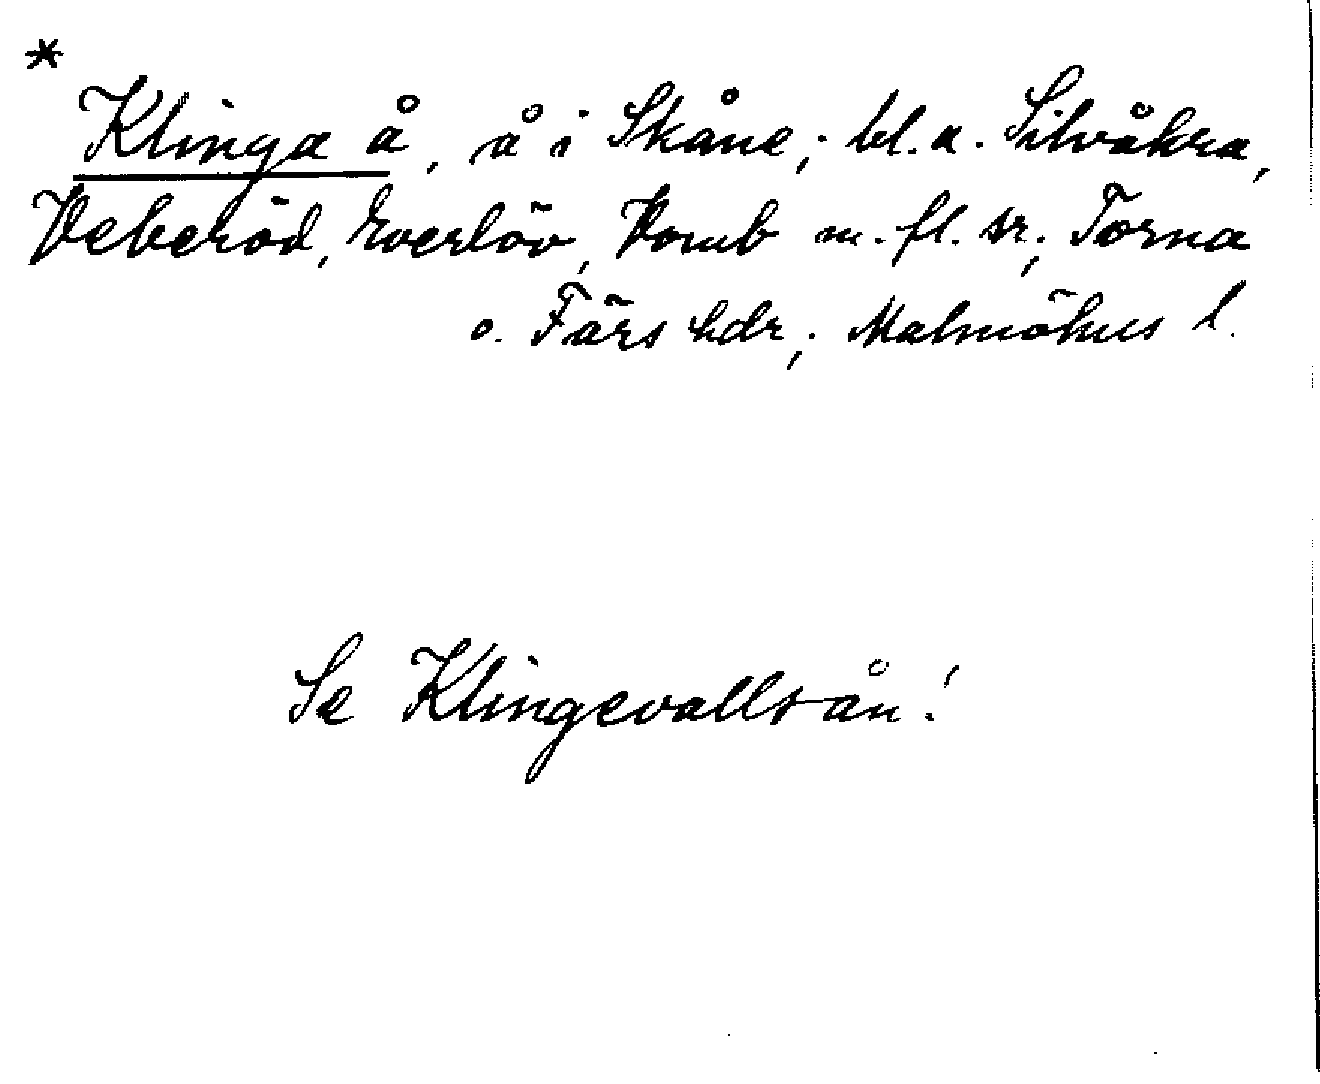 *
Klinga å, å i Skåne; bl.a. Silvåkra,
Veberöd, Everlöv, Vomb m.fl. sr; Torna
o. Färs hdr; Malmöhus l.
Se Klingevallsån!